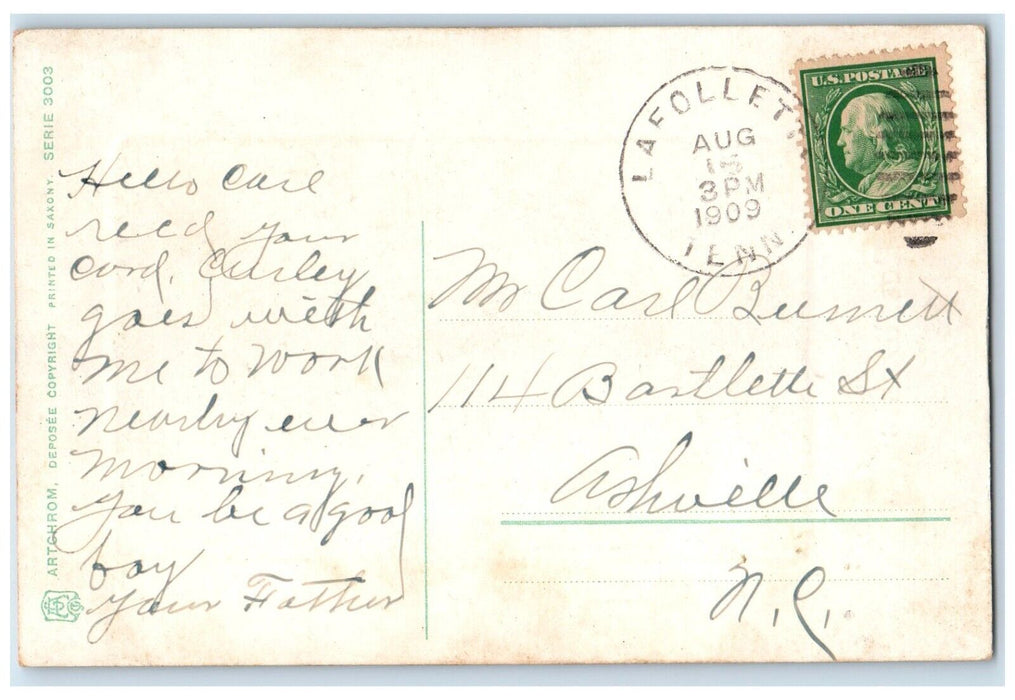 ARTCHROM, DEPOSÉE COPYRIGHT PRINTED IN SAXONY. SERIE 3003
Hello Carl
recd your
card, Curley
goes with
me to work
nearly ever
morning,
you be a good
boy
your Father
LAFOLLETT
AUG
15
3PM
1909
TENN.
U.S. POSTAGE
ONE CENT
Mr Carl Burnett
114 Bartlette St
Ashville
N.C.